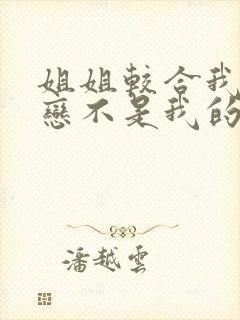 姐姐較合我
戀不是我的
潘越雲